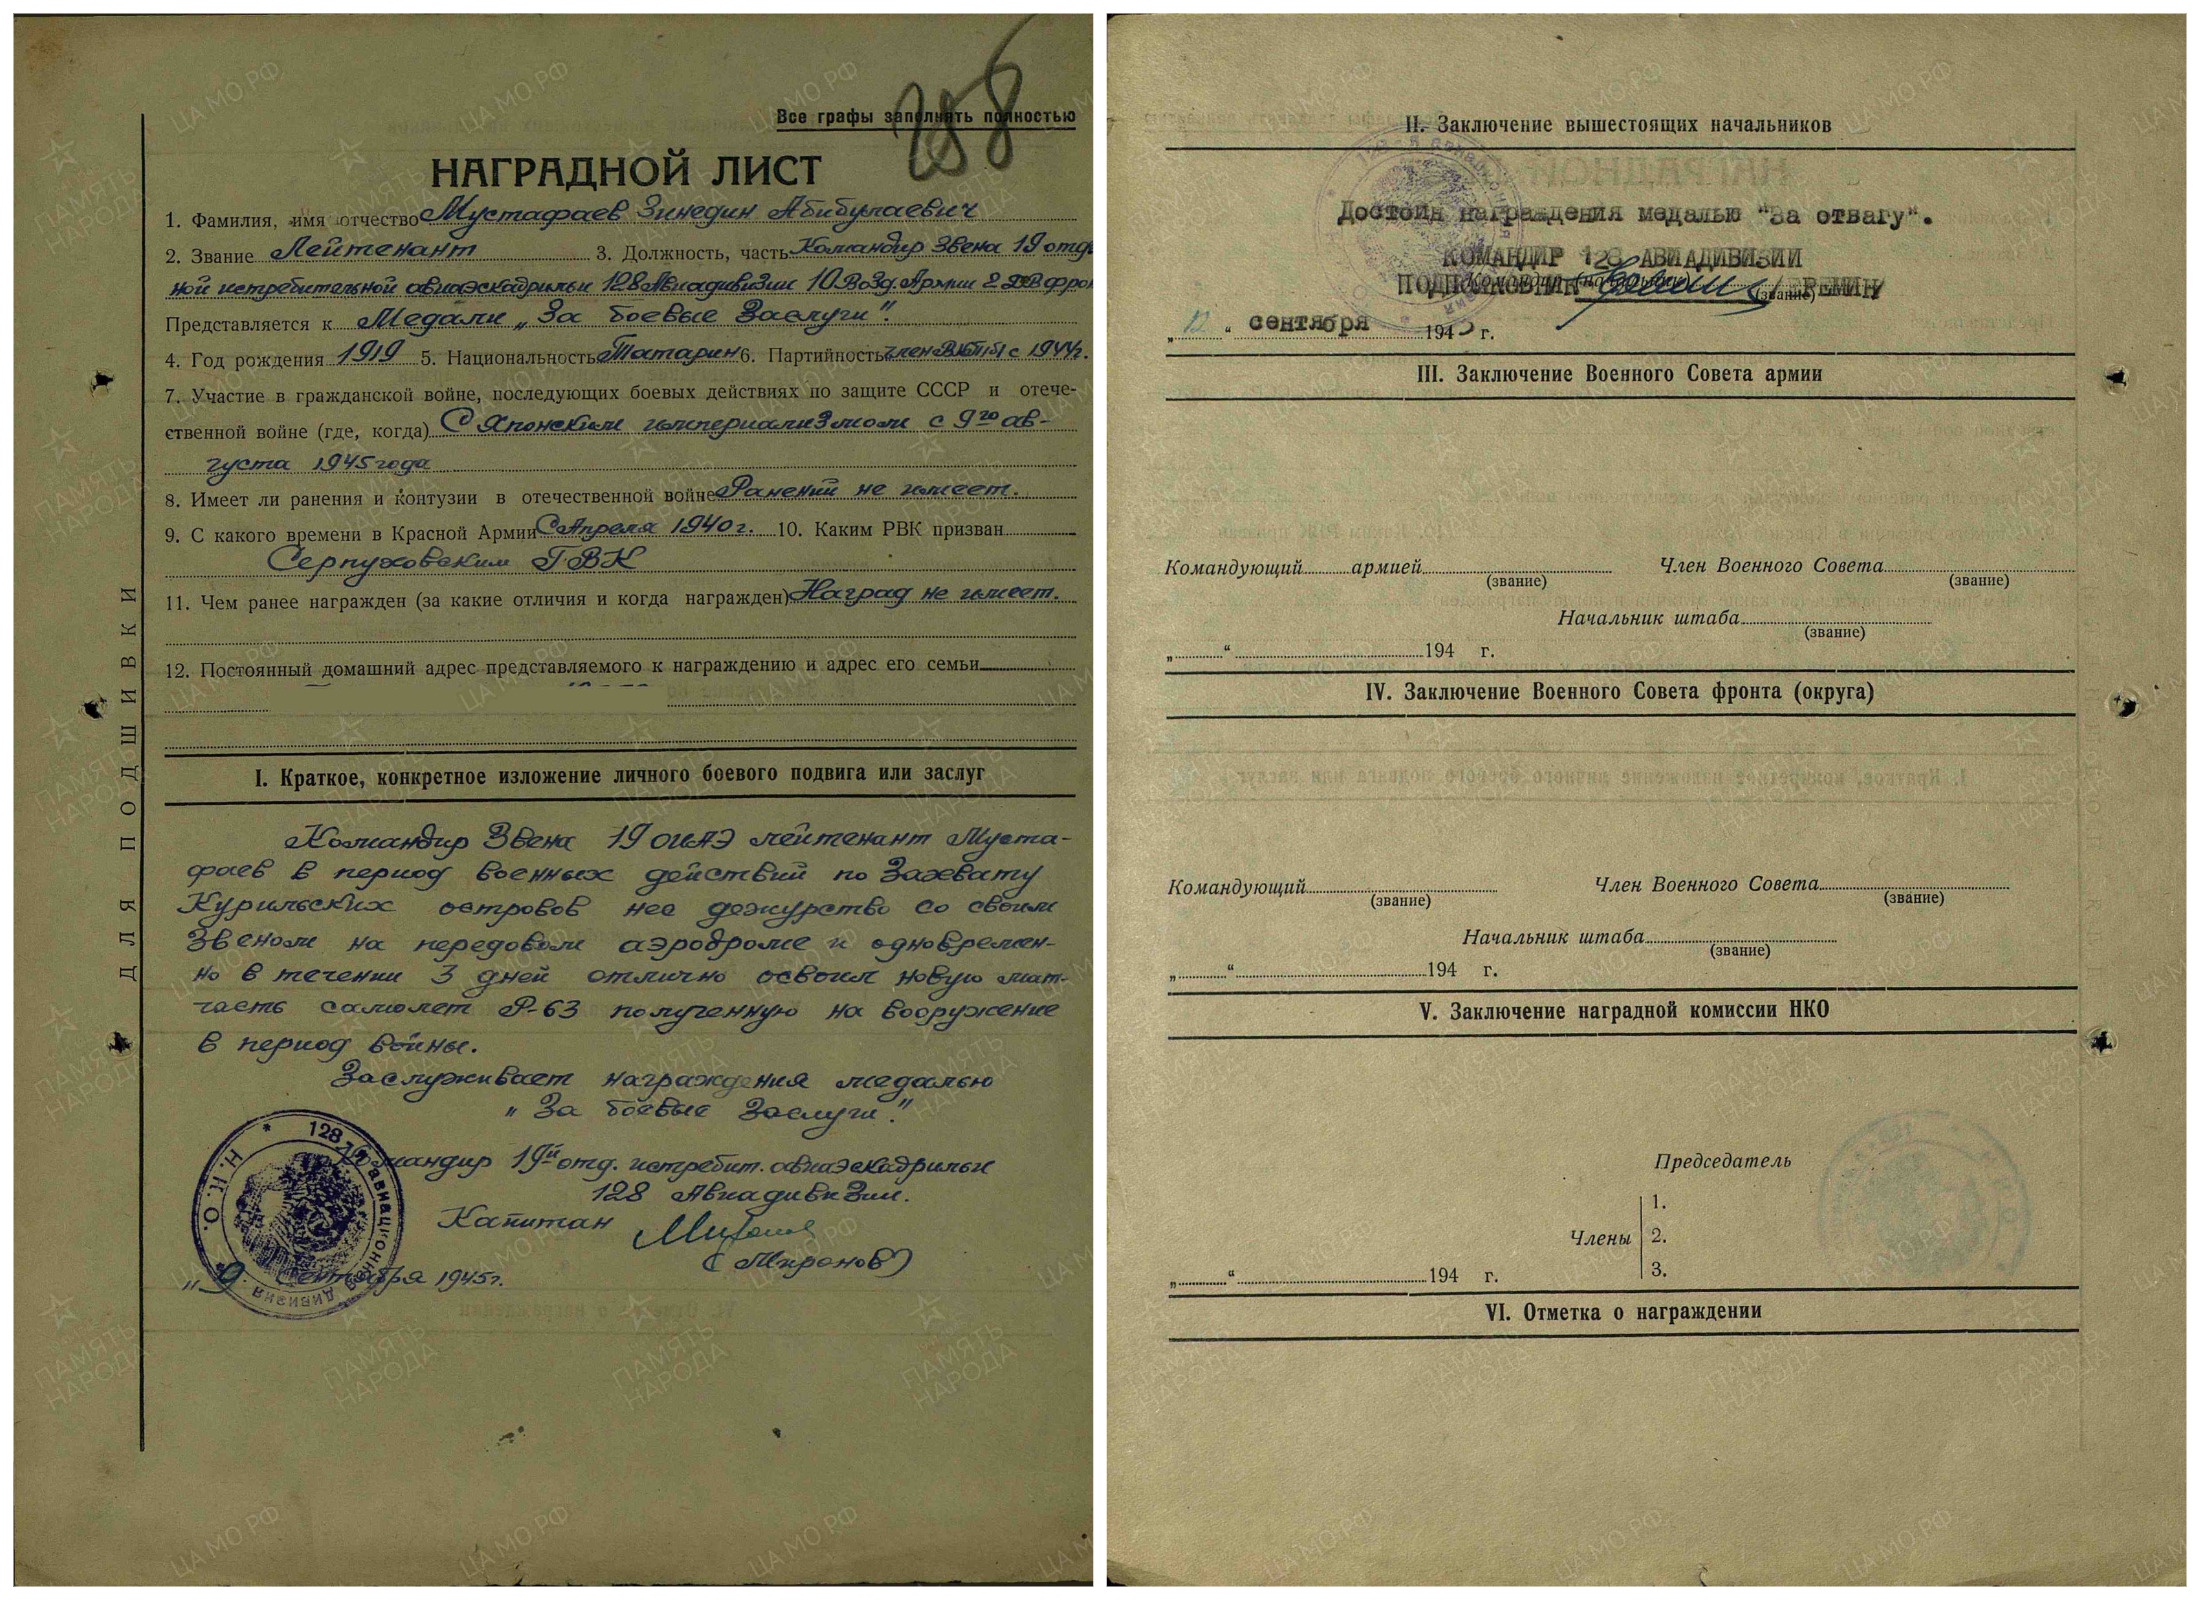 Все графы заполнять полностью
НАГРАДНОЙ ЛИСТ
1. Фамилия, имя отчество Мустафаев Зинедин Абибулаевич
2. Звание Лейтенант 3. Должность, часть Командир Звена 19 отдель
ной истребительной авиаэскадрильи 128 Авиадивизии 10 Возд. Армии 2 ДВ фрон
Представляется к Медали „За боевые Заслуги".
4. Год рождения 1919 5. Национальность Татарин 6. Партийность член ВКП(б) с 1944г.
7. Участие в гражданской войне, последующих боевых действиях по защите СССР и отече-
ственной войне (где, когда) С Японским империализмом с 9го ав-
густа 1945 года
8. Имеет ли ранения и контузии в отечественной войне Ранений не имеет.
9. С какого времени в Красной Армии С Апреля 1940 г. 10. Каким РВК призван
Серпуховским ГВК
11. Чем ранее награжден (за какие отличия и когда награжден) Наград не имеет.
12. Постоянный домашний адрес представляемого к награждению и адрес его семьи
I. Краткое, конкретное изложение личного боевого подвига или заслуг
Командир Звена 19 ОИАЭ лейтенант Муста-
фаев в период военных действий по Захвату
Курильских островов нес дежурство со своим
Звеном на передовом аэродроме и одновремен-
но в течении 3 дней отлично освоил новую мат-
часть самолет Р-63 полученную на вооружение
в период войны.
Заслуживает награждения медалью
„За боевые Заслуги."
Командир 19й отд. истребит. авиаэскадрильи
128 Авиадивизии.
Капитан
(Миронов)
„9" Сентября 1945 г.
* 128-я авиационная дивизия * Н.К.О.
ДЛЯ ПОДШИВКИ
II. Заключение вышестоящих начальников
Достоин награждения медалью "За отвагу".
КОМАНДИР 128 АВИАДИВИЗИИ
ПОДПОЛКОВНИК /ЕРЕМИН/
(звание)
„12" сентября 1945 г.
III. Заключение Военного Совета армии
Командующий армией Член Военного Совета
(звание) (звание)
Начальник штаба
(звание)
„ " 194 г.
IV. Заключение Военного Совета фронта (округа)
Командующий Член Военного Совета
(звание) (звание)
Начальник штаба
(звание)
„ " 194 г.
V. Заключение наградной комиссии НКО
Председатель
1.
Члены 2.
3.
„ " 194 г.
VI. Отметка о награждении
ПАМЯТЬ НАРОДА
ЦА МО РФ